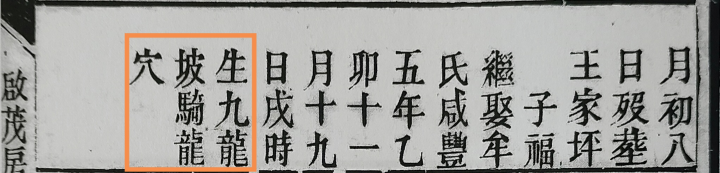 月初八
日殁塟
王家坪
子福
繼娶牟
氏咸豐
五年乙
卯十一
月十九
日戌時
生九龍
坡騎龍
穴
啟茂房